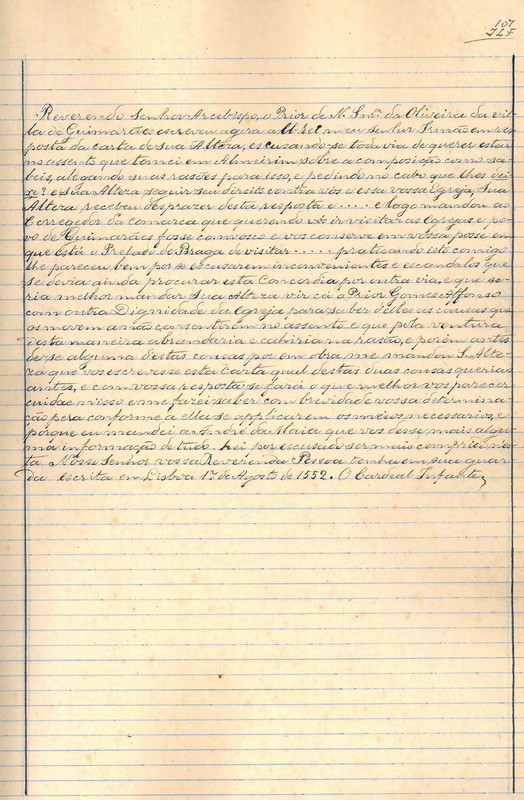 107
JLF
Reverendo Senhor Arcebispo, o Prior de N. Snrª. da Oliveira da vil-
la de Guimarães escreveu agora a El-rei meu senhor Irmão em res-
posta da carta de Sua Alteza, escusando-se todavia de querer estar
no assento que tomei em Almeirim sobre a composição como sa-
beis, alegando suas rasões para isso, e pedindo no cabo que lhes dei-
xe? e Sua Alteza seguir seu direito contra vós e essa vossa Egreja, Sua
Alteza recebeu desprazer desta resposta e ..... e logo mandou ao
Corregedor da comarca que querendo vós ir visitar as Egrejas e po-
vo de Guimarães fosse comvosco e vos conserve em vossa posse em
que está o Prelado de Braga de visitar ...... praticando isto comigo
lhe pareceu bem por se escusarem inconvenientes e escandalos que
se devia ainda procurar esta Concordia por outra via, e que se-
ria melhor mandar Sua Alteza vir cá o Prior Gomes Affonso
com outra Dignidade da Egreja para saber delles as causas que
os movem a não consentirem no assento e que pela ventura
desta maneira abrandaria e cahiria na rasão, e porém antes
de se alguma destas cousas por em obra me mandou S. Alte-
za que vos escrevesse esta Carta qual destas duas cousas querias
antes, e com vossa resposta se fará o que melhor vos parecer
cuidae nisso e me fazei saber com brevidade vossa determina
ção pera conforme a ella se applicarem os meios necessarios, e
porque eu mandei a André da Maia que vos desse mais algu-
ma informação de tudo. hei por escusado ser mais comprido nes-
ta Nosso Senhor vossa Reverenda Pessoa tenha em sua guar-
da escrita em Lisboa 17 de Agosto de 1552. O Cardeal Infante,